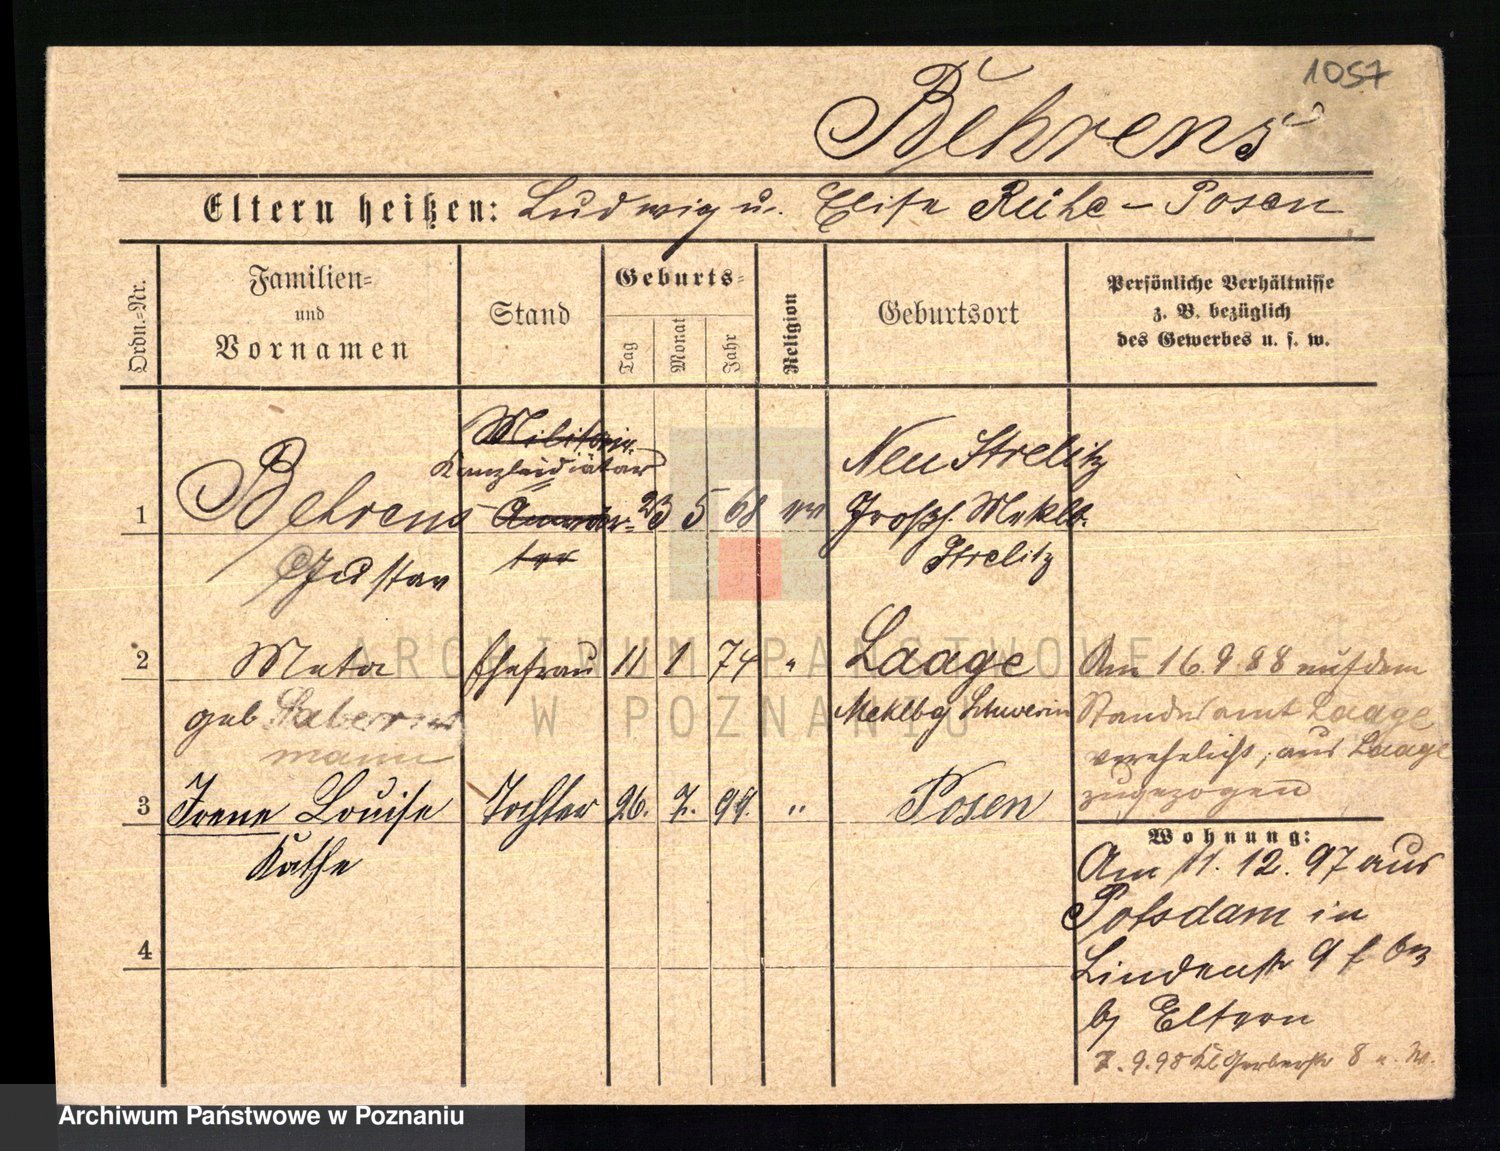 1057
Behrens
Eltern heißen: Ludwig u. Elise Rühe - Posen
Ordn.-Nr.
Familien-
und
Vornamen
Stand
Geburts-
Tag
Monat
Jahr
Religion
Geburtsort
Persönliche Verhältnisse
z. B. bezüglich
des Gewerbes u. s. w.
1
Behrens
Gustav
Militär
Kanzleidiätar
Anwär-
ter
23 5 68 ev
Neu Strelitz
Großh. Meklb.
Strelitz
2
Meta
geb
mann
Ehefrau
11 1 74 "
Laage
Meklbg Schwerin
Am 16. 9 98 auf dem
Standesamt Laage
verehelicht, aus Laage
zugezogen
3
Irene Louise
Käthe
Tochter
26. 7. 99. "
Posen
Wohnung:
Am 11. 12. 97 aus
Potsdam in
Lindenstr 9
b/ Eltern
7. 9. 98 Kl Gerberstr 8 u. W.
4
ARCHIWUM PAŃSTWOWE
W POZNANIU
Archiwum Państwowe w Poznaniu